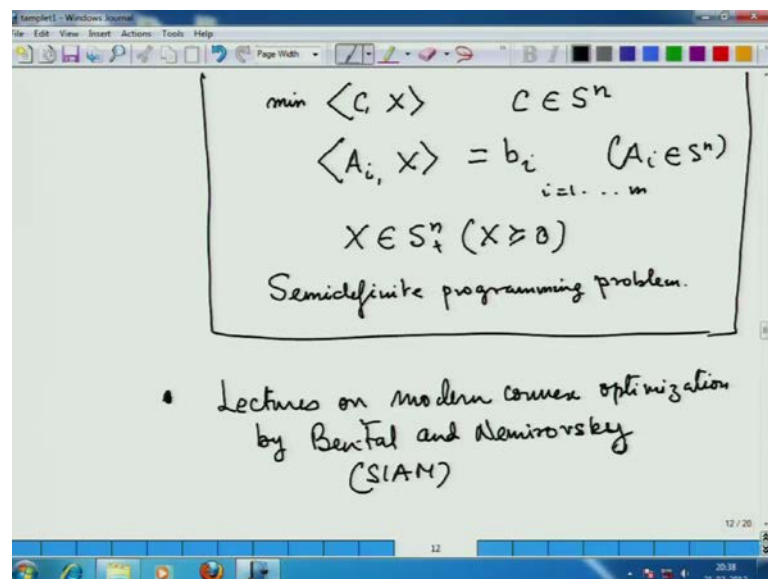 templet1 - Windows Journal
File Edit View Insert Actions Tools Help
Page Width
B I
min ⟨C, X⟩ C ∈ Sⁿ
⟨Aᵢ, X⟩ = bᵢ (Aᵢ ∈ Sⁿ)
i=1 . . . m
X ∈ Sⁿ₊ (X ≽ 0)
Semidefinite programming problem.
• Lectures on modern convex optimization
by BenTal and Nemirovsky
(SIAM)
12 / 20
12
20:38